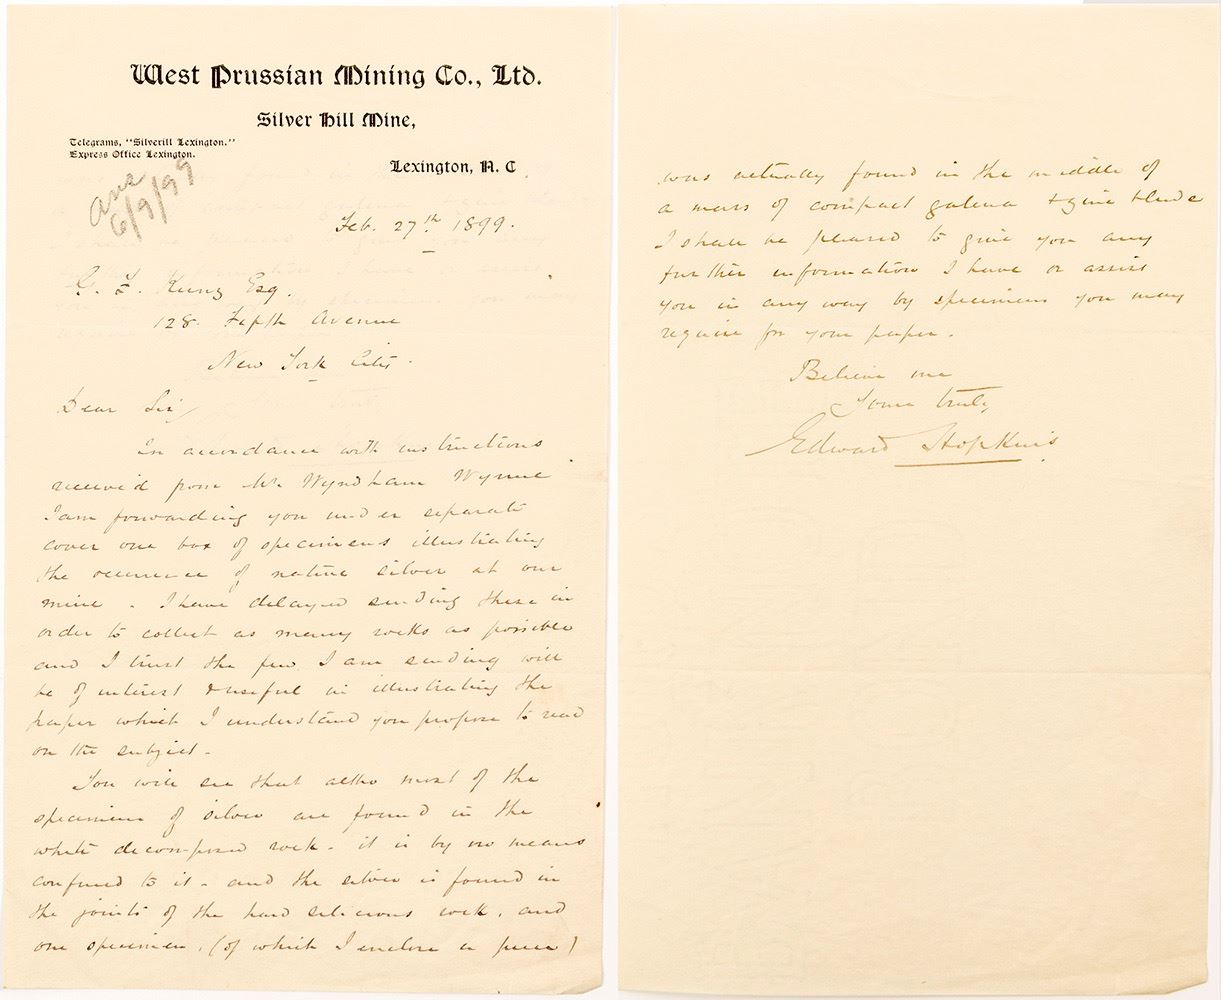 West Prussian Mining Co., Ltd.
Silver Hill Mine,
Telegrams, "Silverill Lexington."
Express Office Lexington.
Lexington, N. C
Ans
6/9/99
Feb. 27th 1899.
G. F. Kunz Esq.
128. Fifth Avenue
New York City.
Dear Sir/
In accordance with instructions
received from Mr. Wyndham Wynne
I am forwarding you under separate
cover one box of specimens illustrating
the occurrence of native silver at our
mine. I have delayed sending these in
order to collect as many rocks as possible
and I trust the few I am sending will
be of interest & useful in illustrating the
paper which I understand you propose to read
on the subject.
You will see that altho most of the
specimens of silver are found in the
white decomposed rock. it is by no means
confined to it. and the silver is found in
the joints of the hard silicious rock, and
one specimen, (of which I enclose a piece)
was actually found in the middle of
a mass of compact galena & zinc blende
I shall be pleased to give you any
further information I have or assist
you in any way by specimens you may
require for your paper.
Believe me
Yours truly
Edward Hopkins